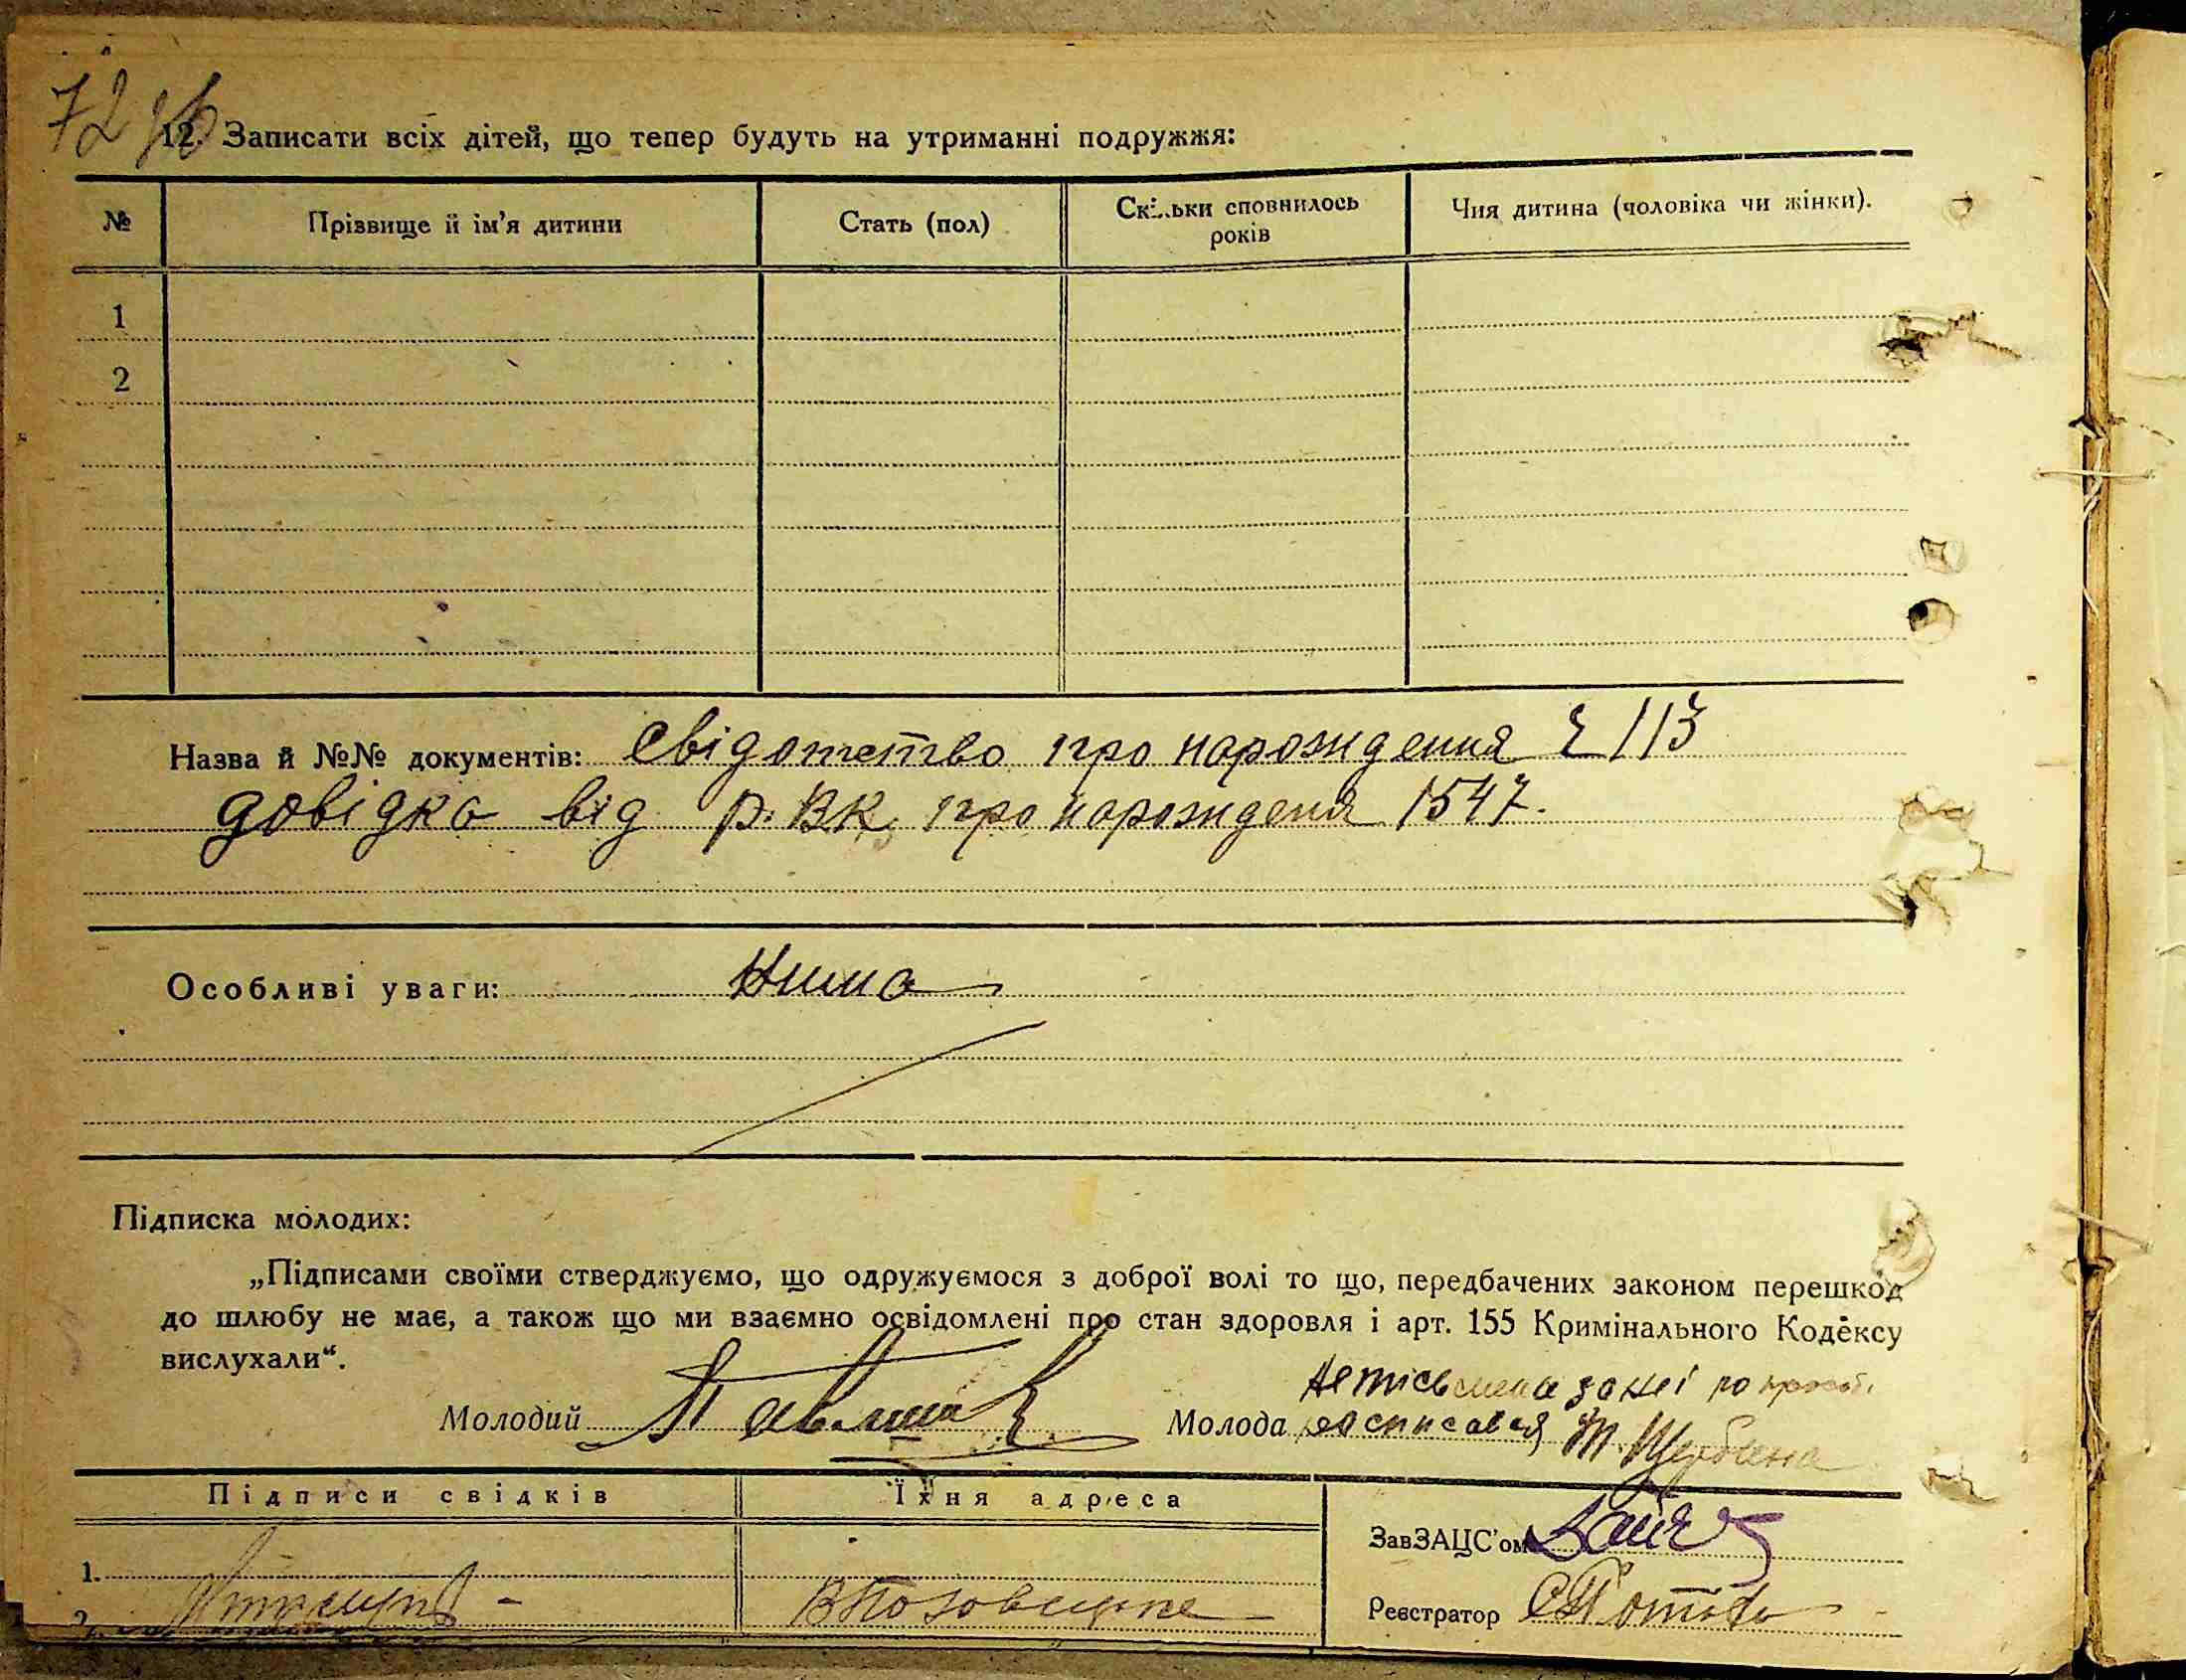 72 зв
12. Записати всіх дітей, що тепер будуть на утриманні подружжя:
№ Прізвище й ім'я дитини Стать (пол) Скільки сповнилось років Чия дитина (чоловіка чи жінки).
1
2
Назва й №№ документів: Свідотство про нарождення 113
довідка від р.ВК про нарожденя 1547.
Особливі уваги: Нима
Підписка молодих:
„Підписами своїми стверджуємо, що одружуємося з доброї волі то що, передбачених законом перешкод
до шлюбу не має, а також що ми взаємно освідомлені про стан здоровля і арт. 155 Кримінального Кодексу
вислухали“.
за неї по
Молодий Молода росписався Щербина
Підписи свідків Їхня адреса
ЗавЗАЦС'ом
1.
Реєстратор
2.